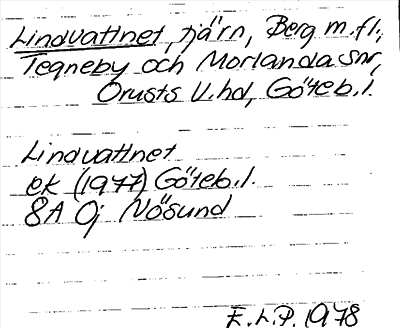 Lindvattnet, tjärn, Berg m.fl.,
Tegneby och Morlanda snr,
Orusts V.hd, Göteb.l.
Lindvattnet
ek (1977) Göteb.l.
8A 0j Nösund
E.L.P. 1978